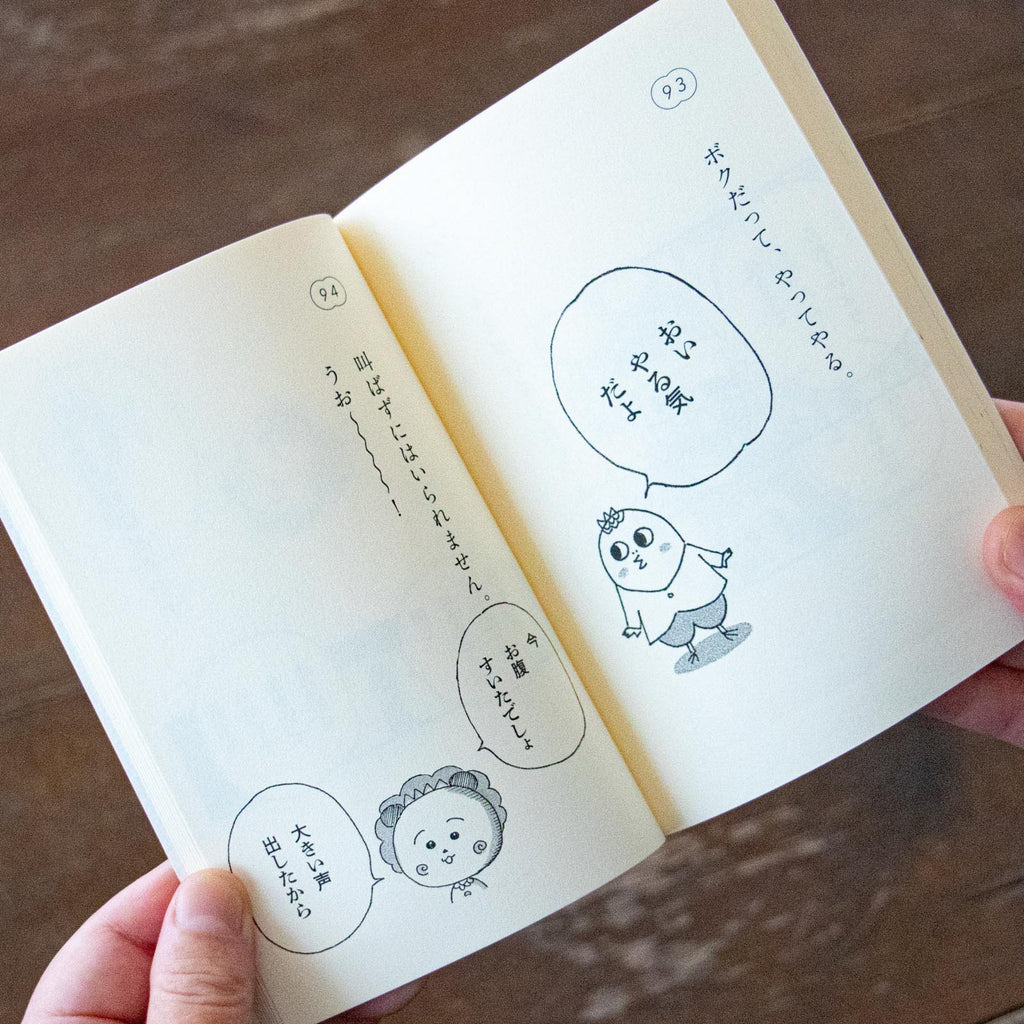 93
ボクだって、やってやる。
おい
やる気
だよ
94
叫ばずにはいられません。
うお〜〜〜〜〜！
今
お腹
すいたでしょ
大きい声
出したから